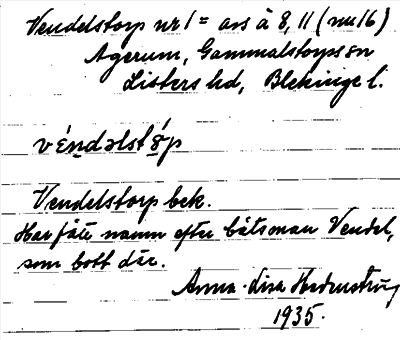 Vendelstorp nr 1 = avs å 8, 11 (nu 16)
Agerum, Gammalstorps sn
Listers hd, Blekinge l.
véndəlstǫ́p
Vendelstorp bek.
Har fått namn efter båtsman Vendel,
som bott där.
Anna-Lisa Hedenström
1935.